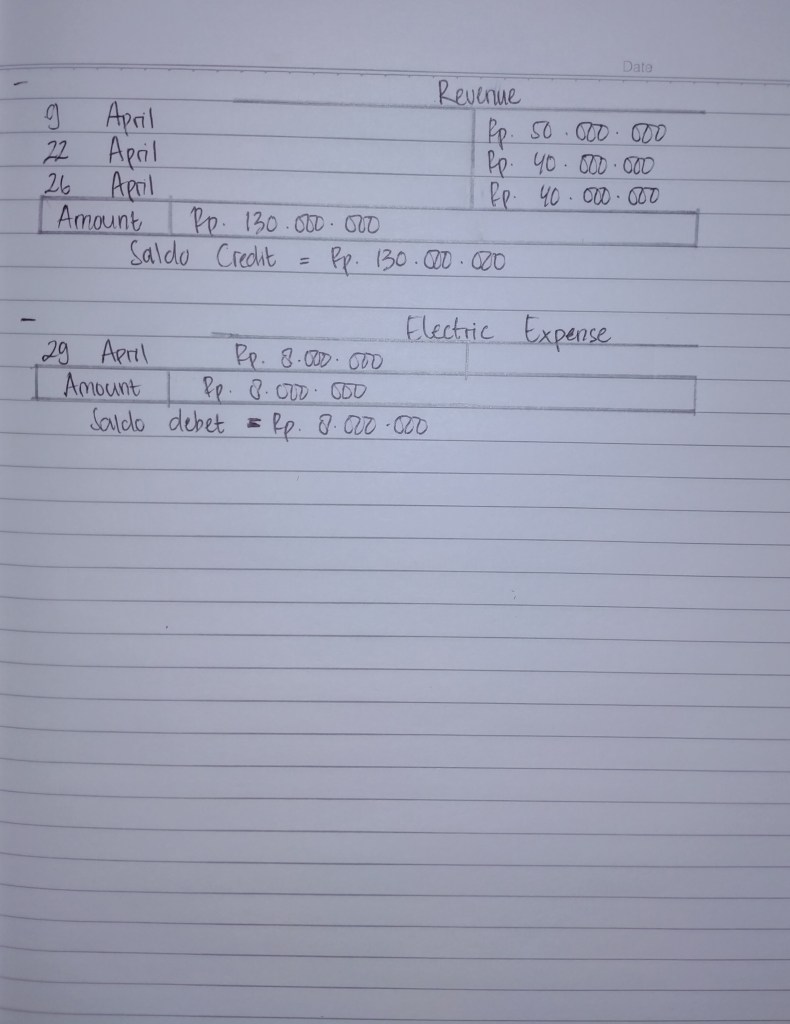 Date
- Revenue
9 April Rp. 50.000.000
22 April Rp. 40.000.000
26 April Rp. 40.000.000
Amount Rp. 130.000.000
Saldo Credit = Rp. 130.000.000
- Electric Expense
29 April Rp. 8.000.000
Amount Rp. 8.000.000
Saldo debet = Rp. 8.000.000